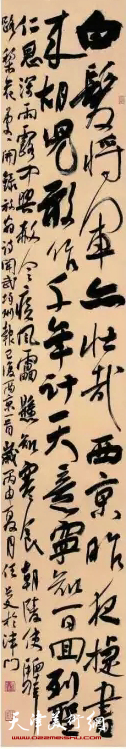 白髮將軍亦壯哉西京昨夜捷書
來胡兒敢作千年計天意寧知一日回列聖
仁恩深雨露中興赦令疾風雷懸知寒食朝陵使驛
路梨花處處開 錄放翁詩聞武均州報已復西京一首 歲丙申夏月 於津門
天津美术网